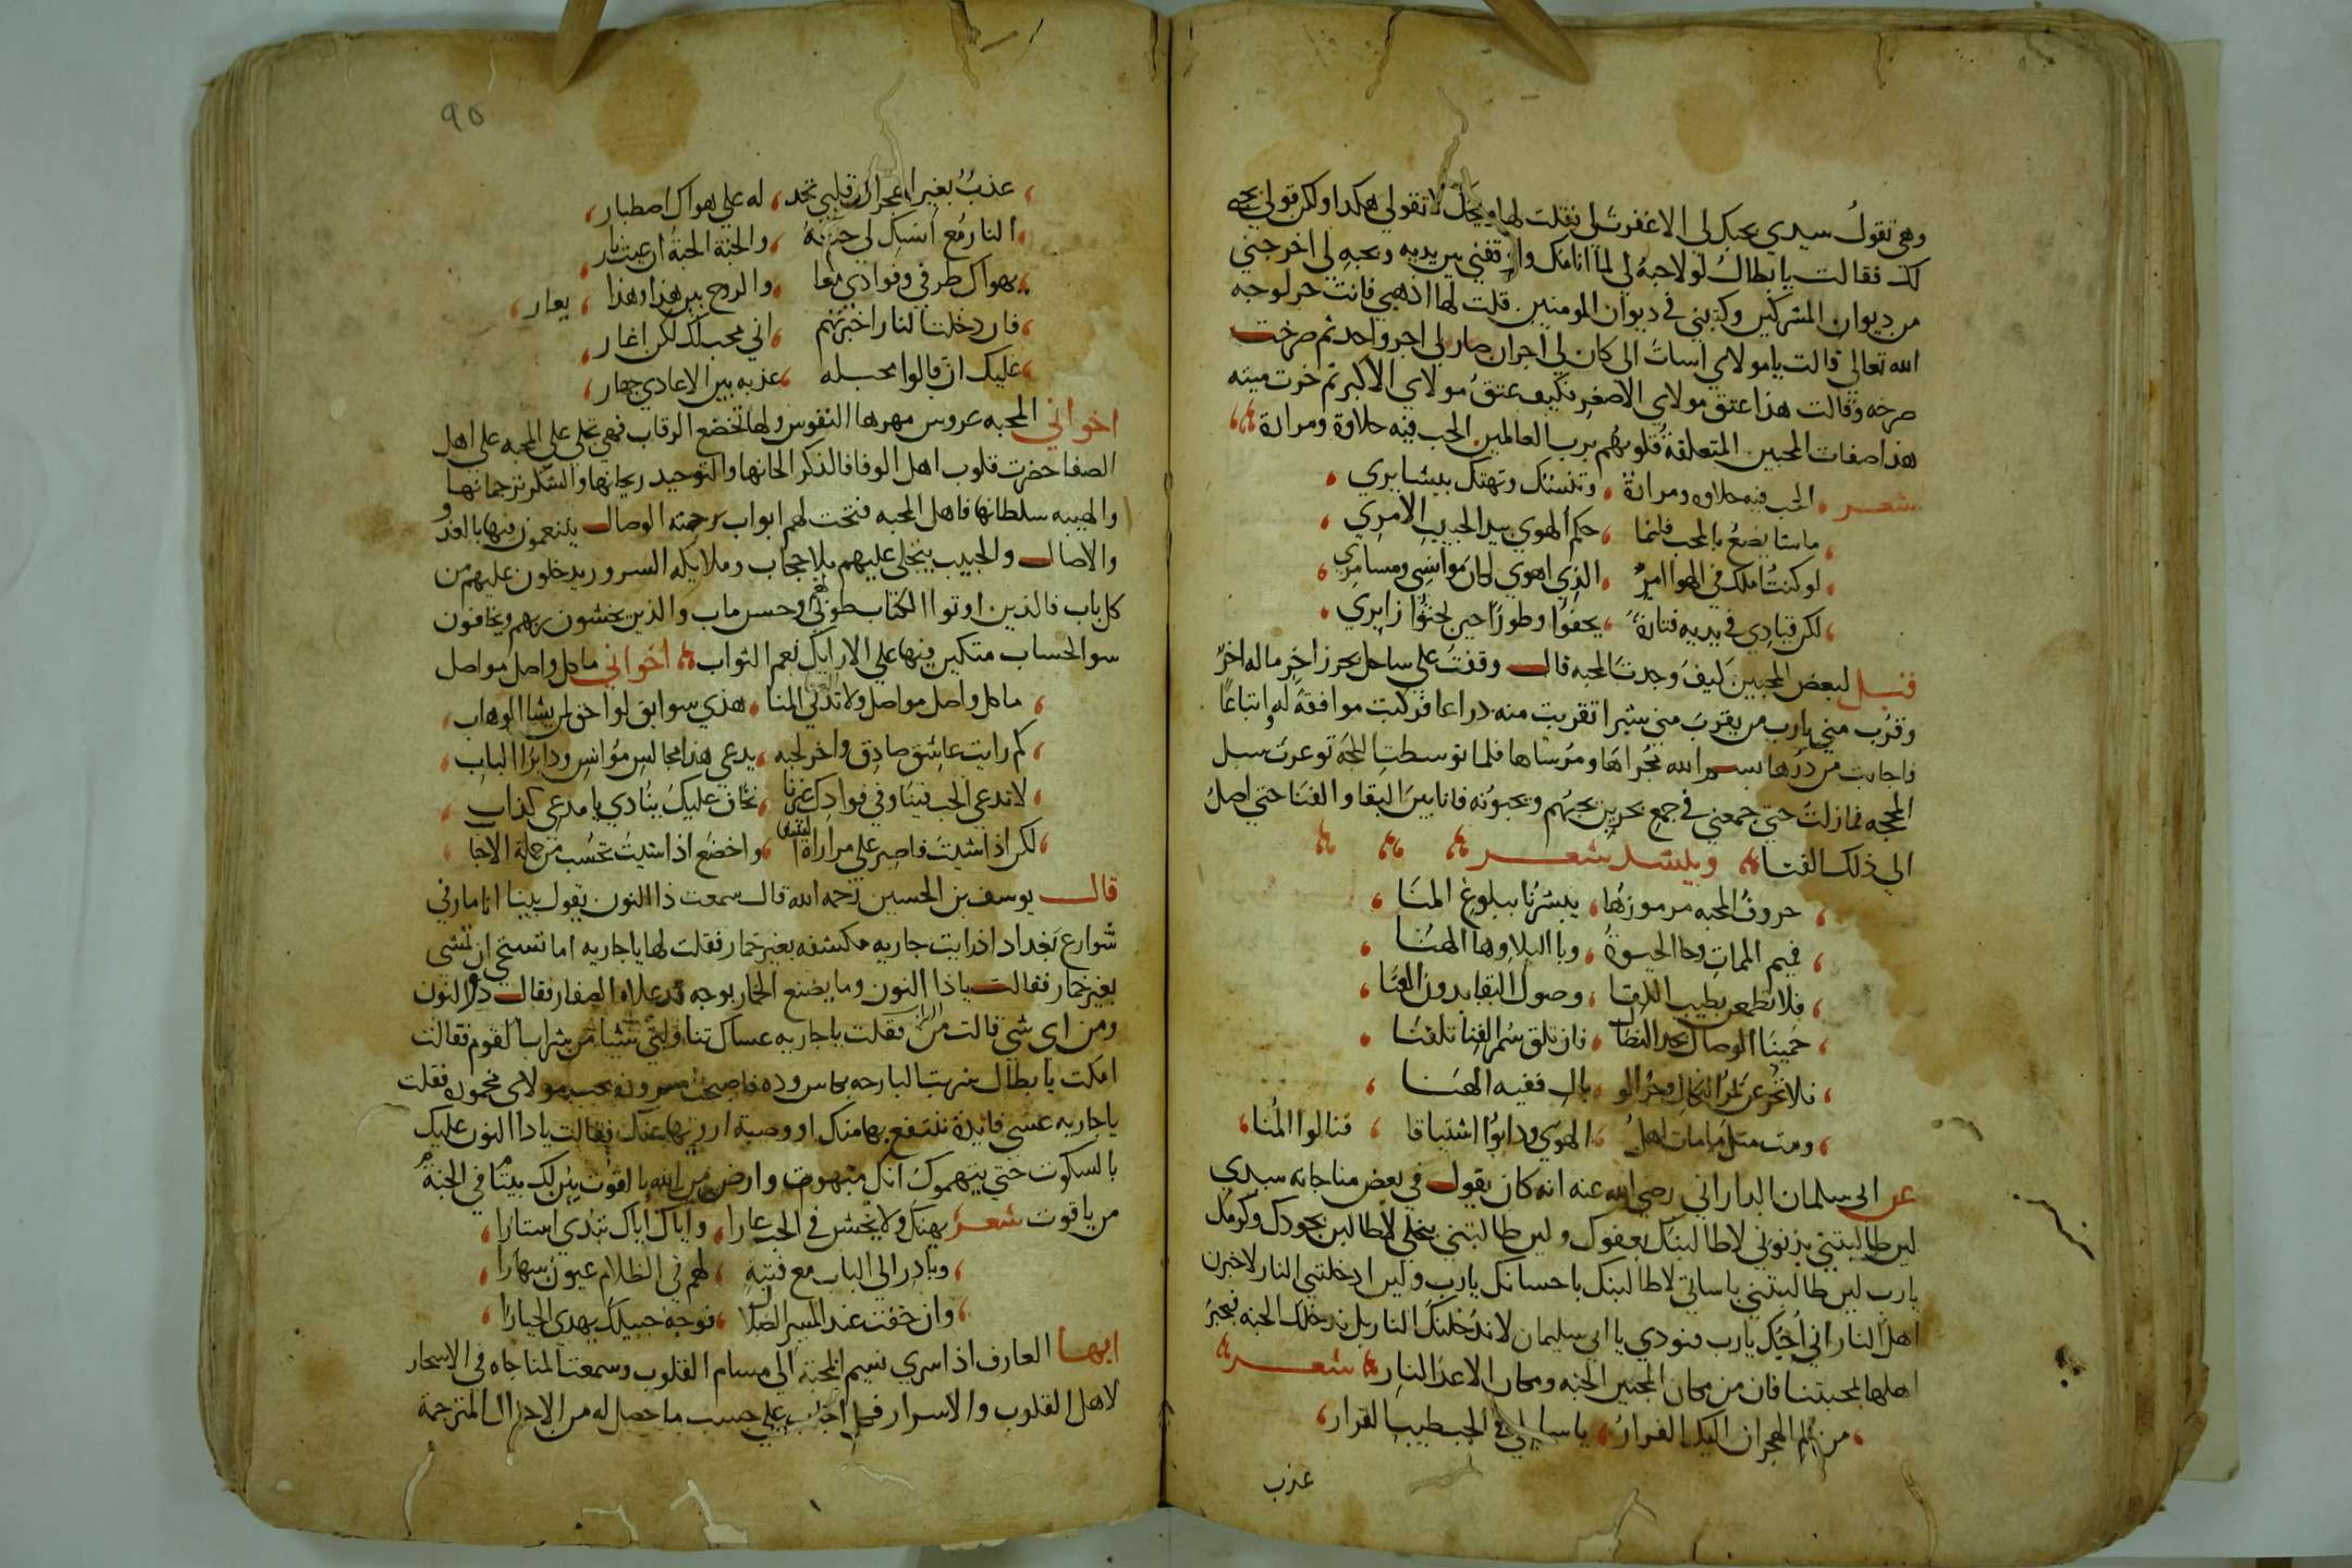 وهي تقول سيدي بحبك لي الا غفرت لي فقلت لها ويحك لا تقولي هكدا ولكن قولي بحبي
لك فقالت يا بطال لولا حبه لي لما انامك واوقفني بين يديه وبحبه لي اخرجني
من ديوان المشركين وكتبني في ديوان المومنين قلت لها اذهبي فانت حر لوجه
الله تعالي قالت يا مولاي اسات الي كان لي اجران صار لي اجر واحد ثم صرخت
صرخه وقالت هذا عتق مولاي الاصغر فكيف عتق مولاي الاكبر ثم خرت ميته
هذا صفات المحبين المتعلقة قلوبهم برب العالمين الحب فيه حلاوة ومرارة
شعر الحب فيه حلاوه ومرارة وتنسك وتهتك بيشابري
ما شا يصنع بالمحب فانما حكم الهوي بيد الحبيب الامري
لو كنت املك في الهوا امر الذي اهوي لكان موانسي ومسامري
لكن قيادي في يديه فتارة يجفوا وطورا حين يحنوا زايري
قيل لبعض المحبين كيف وجدت المحبه قال وقفت علي ساحل بحر زاخر ما له اخر
وقرب مني يا رب من يقرب مني شبرا تقربت منه دراعا فركبت موافقة له واتباعا
واجابت من درها بسم الله مجراها ومرساها فلما توسطت اللجة توعرت سبل
المحجه فما زلت حتي جمعني في جمع بحرين يحبهم ويحبونه فانا بين البقا والفنا حتي اصل
الي ذلك الفنا وينشد شعر
حروف المحبه مرموزها يبشرنا ببلوغ المنا
فميم الممات وحا الحيوة وبا البلا وها الهنا
فلا تطمعن بطيب اللقا وصول البقا بدون الفنا
حمينا الوصال بحد النصال فان تلق سمر القنا تلقنا
فلا تجزعن لمر النكال وحر الوبال ففيه الهنا
ومت مثل ما مات اهل الهوي وذابوا اشتياقا فنالوا المنا
عن ابي سلمان الداراني رضي الله عنه انه كان يقول في بعض مناجاته سيدي
لين طالبتني بذنوبي لاطالبنك بعفوك ولين طالبتني ببخلي لاطالبن بجودك وكرمك
يا رب لين طالبتني باساتي لاطالبنك باحسانك يا رب ولين ادخلتني النار لاخبرن
اهل النار اني احبك يا رب فنودي يا ابي سليمان لا ندخلنك النار بل ندخلك الجنه فتخبر
اهلها بمحبتنا فان من مكان المحبين الجنه ومكان الاعدا النار شعر
من الم الهجران اليك الفرار يا سايلي في الحب طيب القرار
عذب
95
عذب بغير الهجران قلبي تجد له علي هواك اصطبار
النار مع انسك لي جنة والجنة الجنة ان غبت نار
يهواك طرفي وفوادي معا والروح بين هذا وهذا يعار
فان دخلت النار اخبرتهم اني محب لك لكن اغار
عليك ان قالوا محب له عذبه بين الاعادي جهار
اخواني المحبه عروس مهرها النفوس ولها تخضع الرقاب فهي تجلي علي المحبه علي اهل
الصفا حضرت قلوب اهل الوفا فالذكر الحانها والتوحيد ريحانها والشكر ترجمانها
والهيبه سلطانها فاهل المحبه فتحت لهم ابواب رحمته الوصال يتنعمون فيها بالغدو
والاصال والحبيب يتجلى عليهم بلا حجاب وملايكه السرور يدخلون عليهم من
كل باب فالذين اوتوا الكتاب طوبى لهم وحسن ماب والذين يخشون ربهم ويخافون
سو الحساب متكين فيها علي الارايك نعم الثواب اخواني ما كل واصل مواصل
ما كل واصل مواصل ولا تدلي المنا هذي سوابق لواحق لمن يشا الوهاب
كم رايت عاشق صادق واخر لحبه يدعي هذا مجالس موانس ودا برا الباب
لا تدعي الحب فينا وفي فوادك غيرنا نخاف عليك ينادي يا مدعي كذاب
لكن اذا شيت فاصبر علي مرارة واخضع اذا شيت تحسب من جملة الاحبا
قال يوسف بن الحسين رحمه الله قال سمعت ذا النون يقول بينا انا مار في
شوارع بغداد اذ رايت جاريه مكشفه بغير خمار فقلت لها يا جاريه اما تستحي ان تمشي
بغير خمار فقالت يا ذا النون وما يصنع الخمار بوجه قد علاه الصفار فقال ذو النون
ومن اى شي قالت من فقلت يا جاريه عساك تناوليني شيا من شراب القوم فقالت
امكت يا بطال شربت البارحه بكاس وده فاصبحت مسرورة بحب مولاى مخموره فقلت
يا جاريه عسى فايدة ننتفع بها منك او وصية اروتها عنك فقالت يا ذا النون عليك
بالسكوت حتي يتهموك انك مبهوت وارض من الله بالقوت يبن لك بيتا في الجنة
من ياقوت شعر تهتك ولا تخش في الحب عارا واياك اياك تبدي استارا
وبادر الي الباب مع فتية لهم في الظلام عيون سهارا
وان خفت عند المسير الضلال فوجه حبيبك يهدي الحيارا
ايها العارف اذا سري نسيم المحبة الي مسام القلوب وسمعت المناجاه في الاسحار
لاهل القلوب والاسرار فكل اجاب علي حسب ما حصل له من الاحوال المترجمة